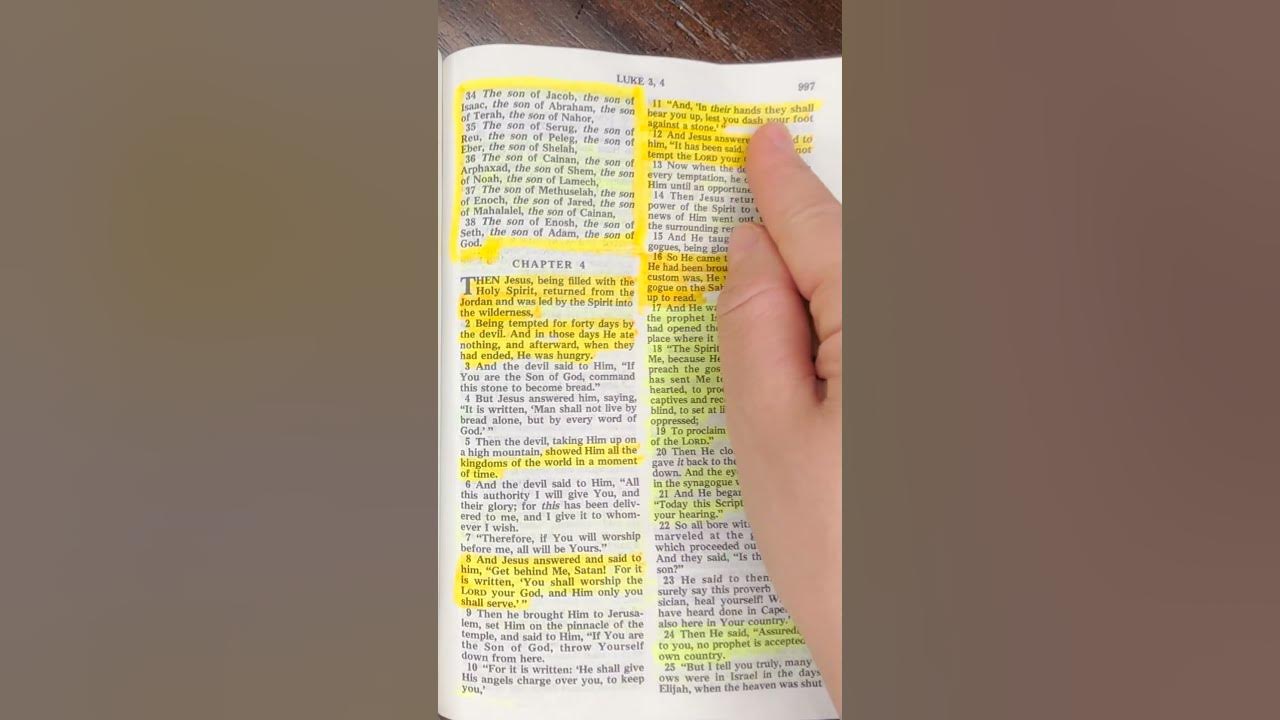 LUKE 3, 4
997
34 The son of Jacob, the son of
Isaac, the son of Abraham, the son
of Terah, the son of Nahor,
35 The son of Serug, the son of
Reu, the son of Peleg, the son of
Eber, the son of Shelah,
36 The son of Cainan, the son of
Arphaxad, the son of Shem, the son
of Noah, the son of Lamech,
37 The son of Methuselah, the son
of Enoch, the son of Jared, the son
of Mahalalel, the son of Cainan,
38 The son of Enosh, the son of
Seth, the son of Adam, the son of
God.
CHAPTER 4
THEN Jesus, being filled with the
Holy Spirit, returned from the
Jordan and was led by the Spirit into
the wilderness,
2 Being tempted for forty days by
the devil. And in those days He ate
nothing, and afterward, when they
had ended, He was hungry.
3 And the devil said to Him, “If
You are the Son of God, command
this stone to become bread.”
4 But Jesus answered him, saying,
“It is written, ‘Man shall not live by
bread alone, but by every word of
God.’ ”
5 Then the devil, taking Him up on
a high mountain, showed Him all the
kingdoms of the world in a moment
of time.
6 And the devil said to Him, “All
this authority I will give You, and
their glory; for this has been deliv-
ered to me, and I give it to whom-
ever I wish.
7 “Therefore, if You will worship
before me, all will be Yours.”
8 And Jesus answered and said to
him, “Get behind Me, Satan! For it
is written, ‘You shall worship the
LORD your God, and Him only you
shall serve.’ ”
9 Then he brought Him to Jerusa-
lem, set Him on the pinnacle of the
temple, and said to Him, “If You are
the Son of God, throw Yourself
down from here.
10 “For it is written: ‘He shall give
His angels charge over you, to keep
you,’
11 “And, ‘In their hands they shall
bear you up, lest you dash your foot
against a stone.’ ”
12 And Jesus answered to
him, “It has been said, not
tempt the LORD your
13 Now when the
every temptation, he
Him until an opportune
14 Then Jesus
power of the Spirit to
news of Him went out
the surrounding
15 And He
gogues, being
16 So He came
He had been
custom was, He
gogue on the
up to read.
17 And He
the prophet
had opened the
place where it
18 “The Spirit
Me, because He
preach the
has sent Me
hearted, to
captives and
blind, to set at
oppressed;
19 To proclaim
of the LORD.”
20 Then He
gave it back to the
down. And the
in the synagogue
21 And He began
“Today this
your hearing.”
22 So all bore
marveled at the
which proceeded
And they said, “Is
son?”
23 He said to
surely say this proverb
sician, heal yourself!
have heard done in
also here in Your country.’
24 Then He said,
to you, no prophet is accepted
own country.
25 “But I tell you truly, many
ows were in Israel in the days
Elijah, when the heaven was shut